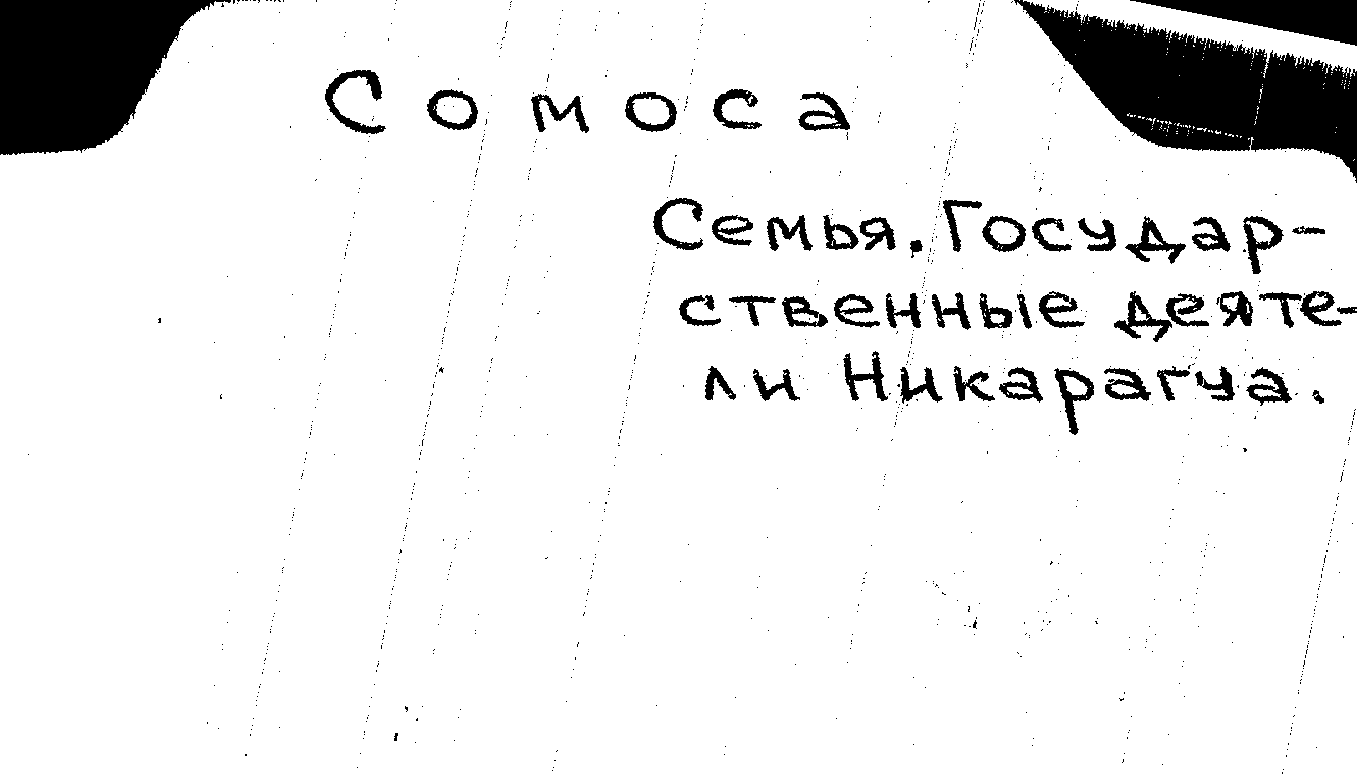 Сомоса
Семья. Государ-
ственные деяте-
ли Никарагуа.